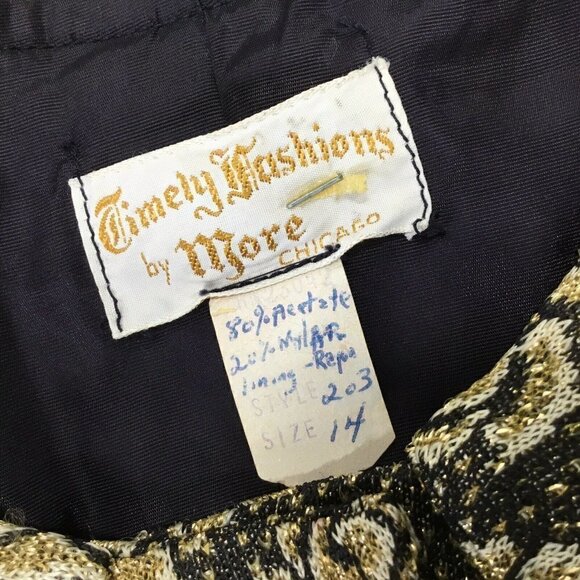 Timely Fashions
by More
CHICAGO
80% Acetate
20% Mylar
lining - Rayo
STYLE 203
SIZE 14